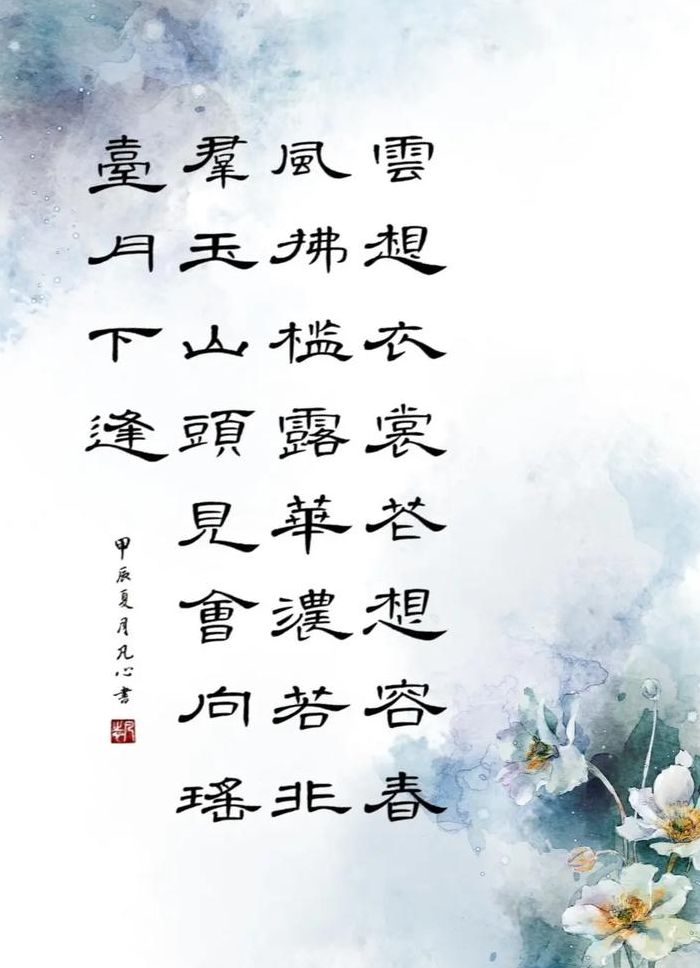 雲想衣裳花想容春
風拂檻露華濃若非
羣玉山頭見會向瑤
臺月下逢
甲辰夏月凡心書